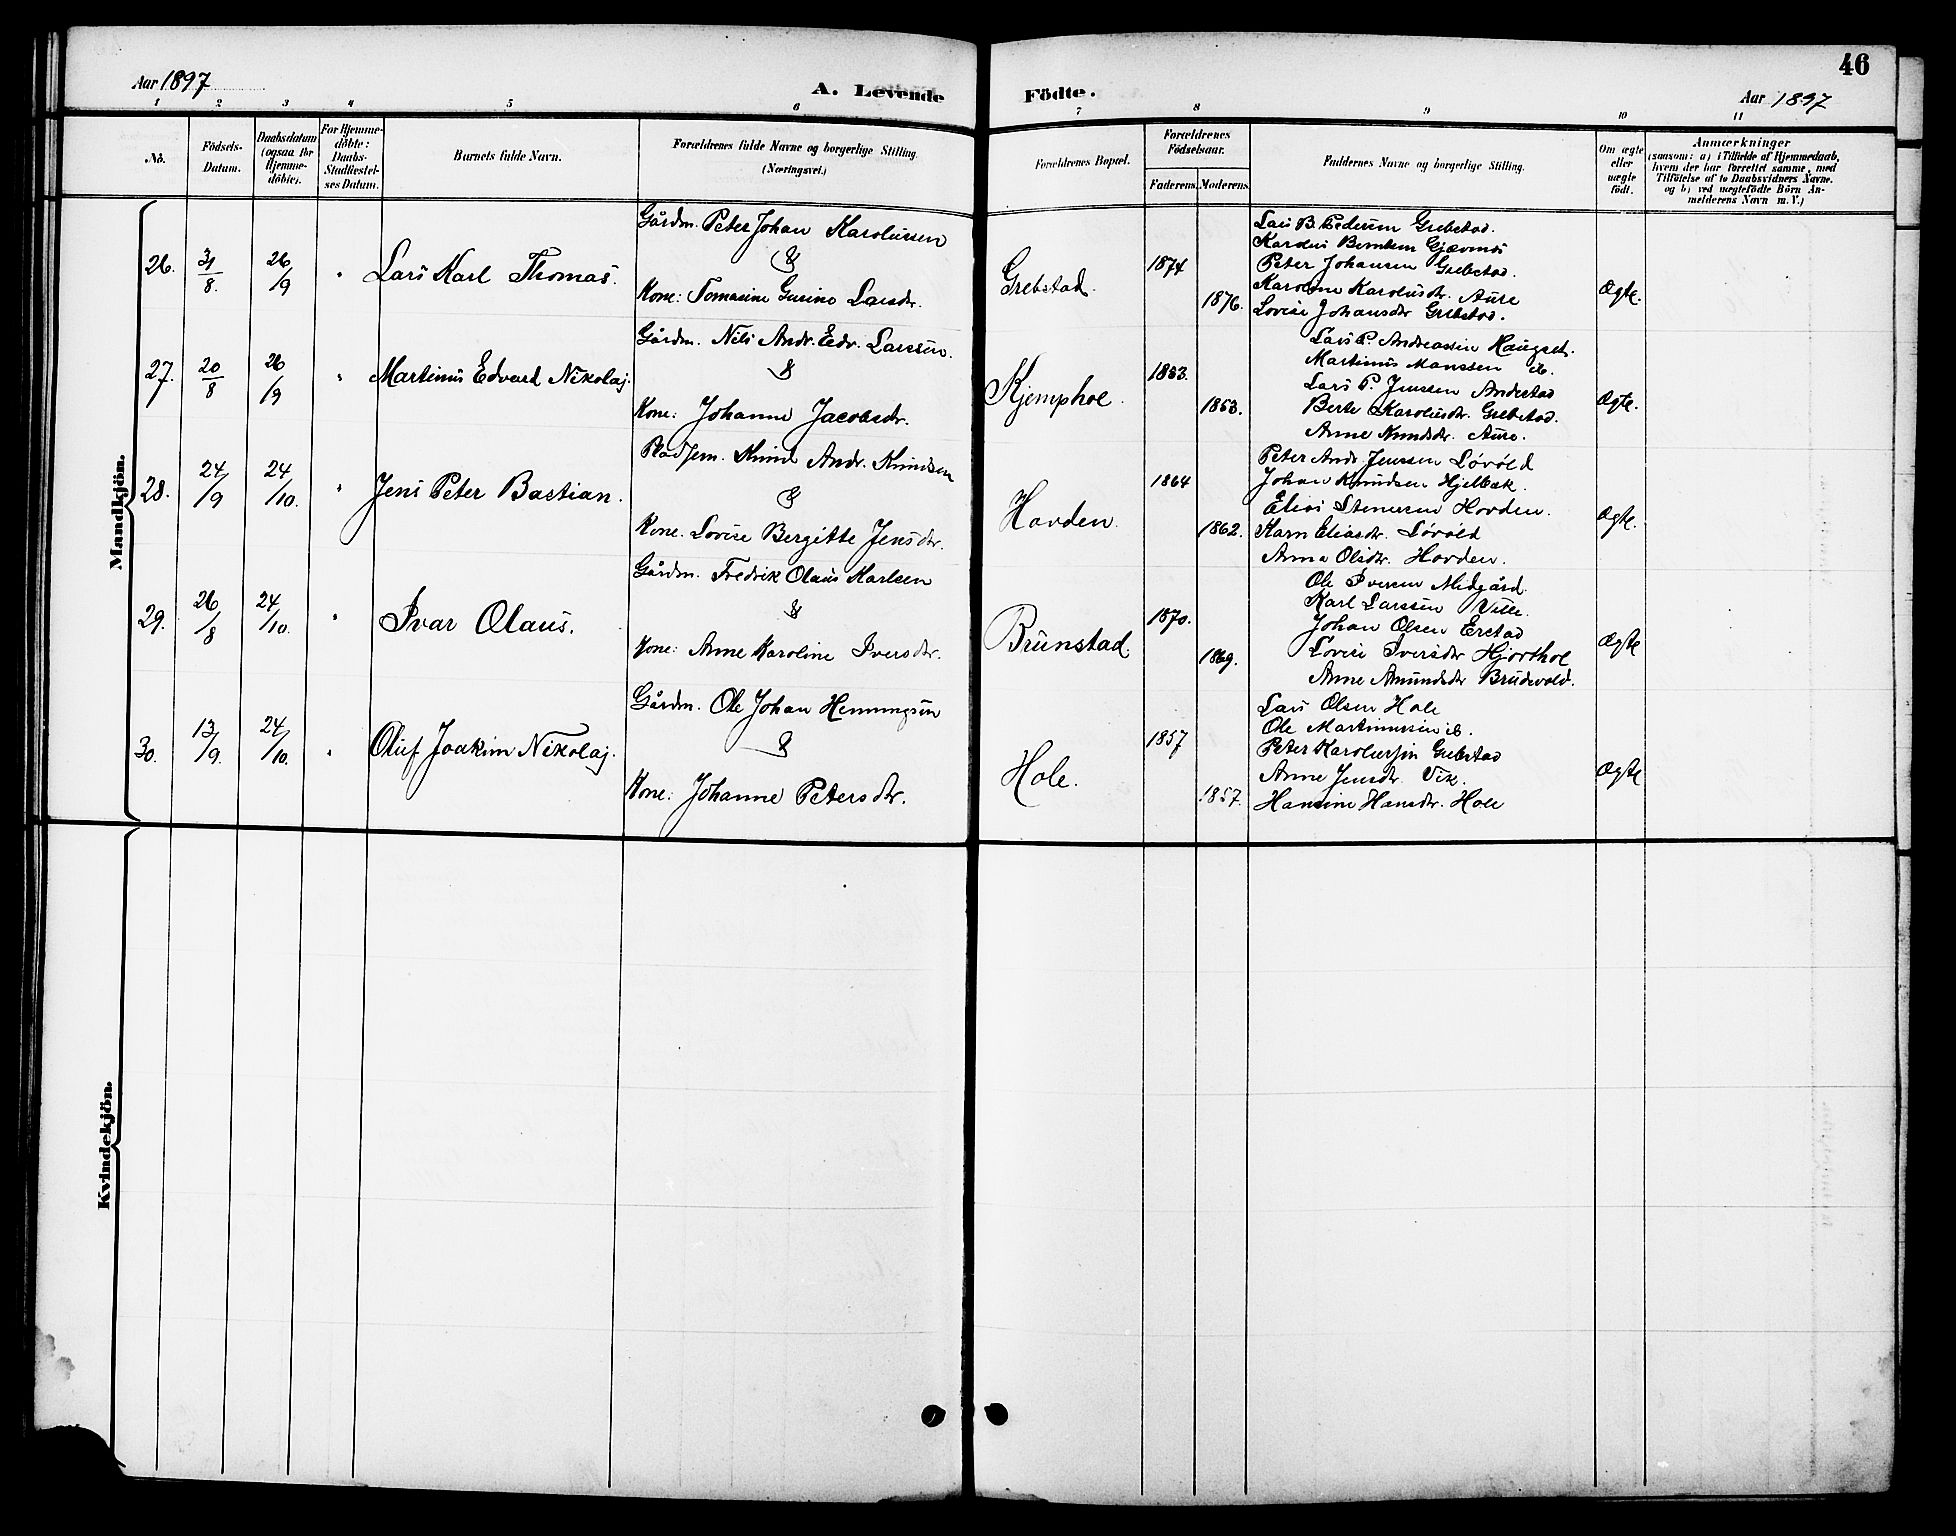 46
Aar 1897
A. Levende Födte.
Aar 1897
1 2 3 4 5 6 7 8 9 10 11
No.
Födsels-Datum.
Daabsdatum (ogsaa for Hjemme-döbte).
For Hjemme-döbte: Daabs-Stadfæstel-ses Datum.
Barnets fulde Navn.
Forældrenes fulde Navne og borgerlige Stilling. (Næringsvei.)
Forældrenes Bopæl.
Forældrenes Födselsaar.
Faderens. Moderens.
Faddernes Navne og borgerlige Stilling.
Om ægte eller uægte födt.
Anmærkninger
(saasom: a) i Tilfælde af Hjemmedaab, hvem der har forrettet samme, med Tilföielse af to Daabsvidners Navne. og b) ved uægtefödte Börn An-melderens Navn m. V.)
Mandkjön.
26. 31/8. 26/9 " Lars Karl Thomas.
Gårdm. Peter Johan Karolussen
&
Kone: Tomasine Larsdr.
Grebstad. 1874 1876.
Lars B. Pedersen Grebstad.
Karolus Berntsen
Peter Johansen Grebstad.
Karoline Karolusdr. Aure
Lovise Johansdr Grebstad.
Ægte.
27. 20/8 26/9 " Martinus Edvard Nikolaj.
Gårdm. Nils Andr. Edv. Larssen.
&
Kone: Johanne Jacobsdr.
Kjemphol. 1853. 1853.
Lars P. Andreassen Haugset.
Martinus Monssen ib.
Lars P. Jenssen Andestad
Berte Karolusdr. Grebstad.
Anne Knudsdr. Aure.
Ægte.
28. 24/9 24/10. " Jens Peter Bastian.
Pladsem. Knud Andr. Knudsen
&
Kone. Lovise Bergitte Jensdr.
Hovden. 1864 1862.
Peter Andr. Jenssen Lövold
Johan Knudsen Hjelbak.
Elias Stenersen Hovden.
Karn Eliasdr. Lövold
Anna Olsdr. Hovden.
Ægte.
29. 26/8 24/10. " Ivar Olaus.
Gårdm. Fredrik Olaus Karlsen
&
Kone: Anne Karoline Iversdr.
Brunstad. 1870. 1869.
Ole Iversen Midgård.
Karl Larssen Velle.
Johan Olsen Erstad
Lovise Iversdr Hjorthol
Anne Amundsdr Brudevold.
Ægte
30. 13/9. 24/10. " Oluf Joakim Nikolaj.
Gårdm. Ole Johan Hemmingsen
&
Kone: Johanne Petersdr.
Hole. 1857 1857.
Lars Olsen Hole
Ole Martinussen ib.
Peter Karolussen Grebstad
Anne Jensdr. Vik.
Hansine Hansdr. Hole
Ægte
Kvindekjön.